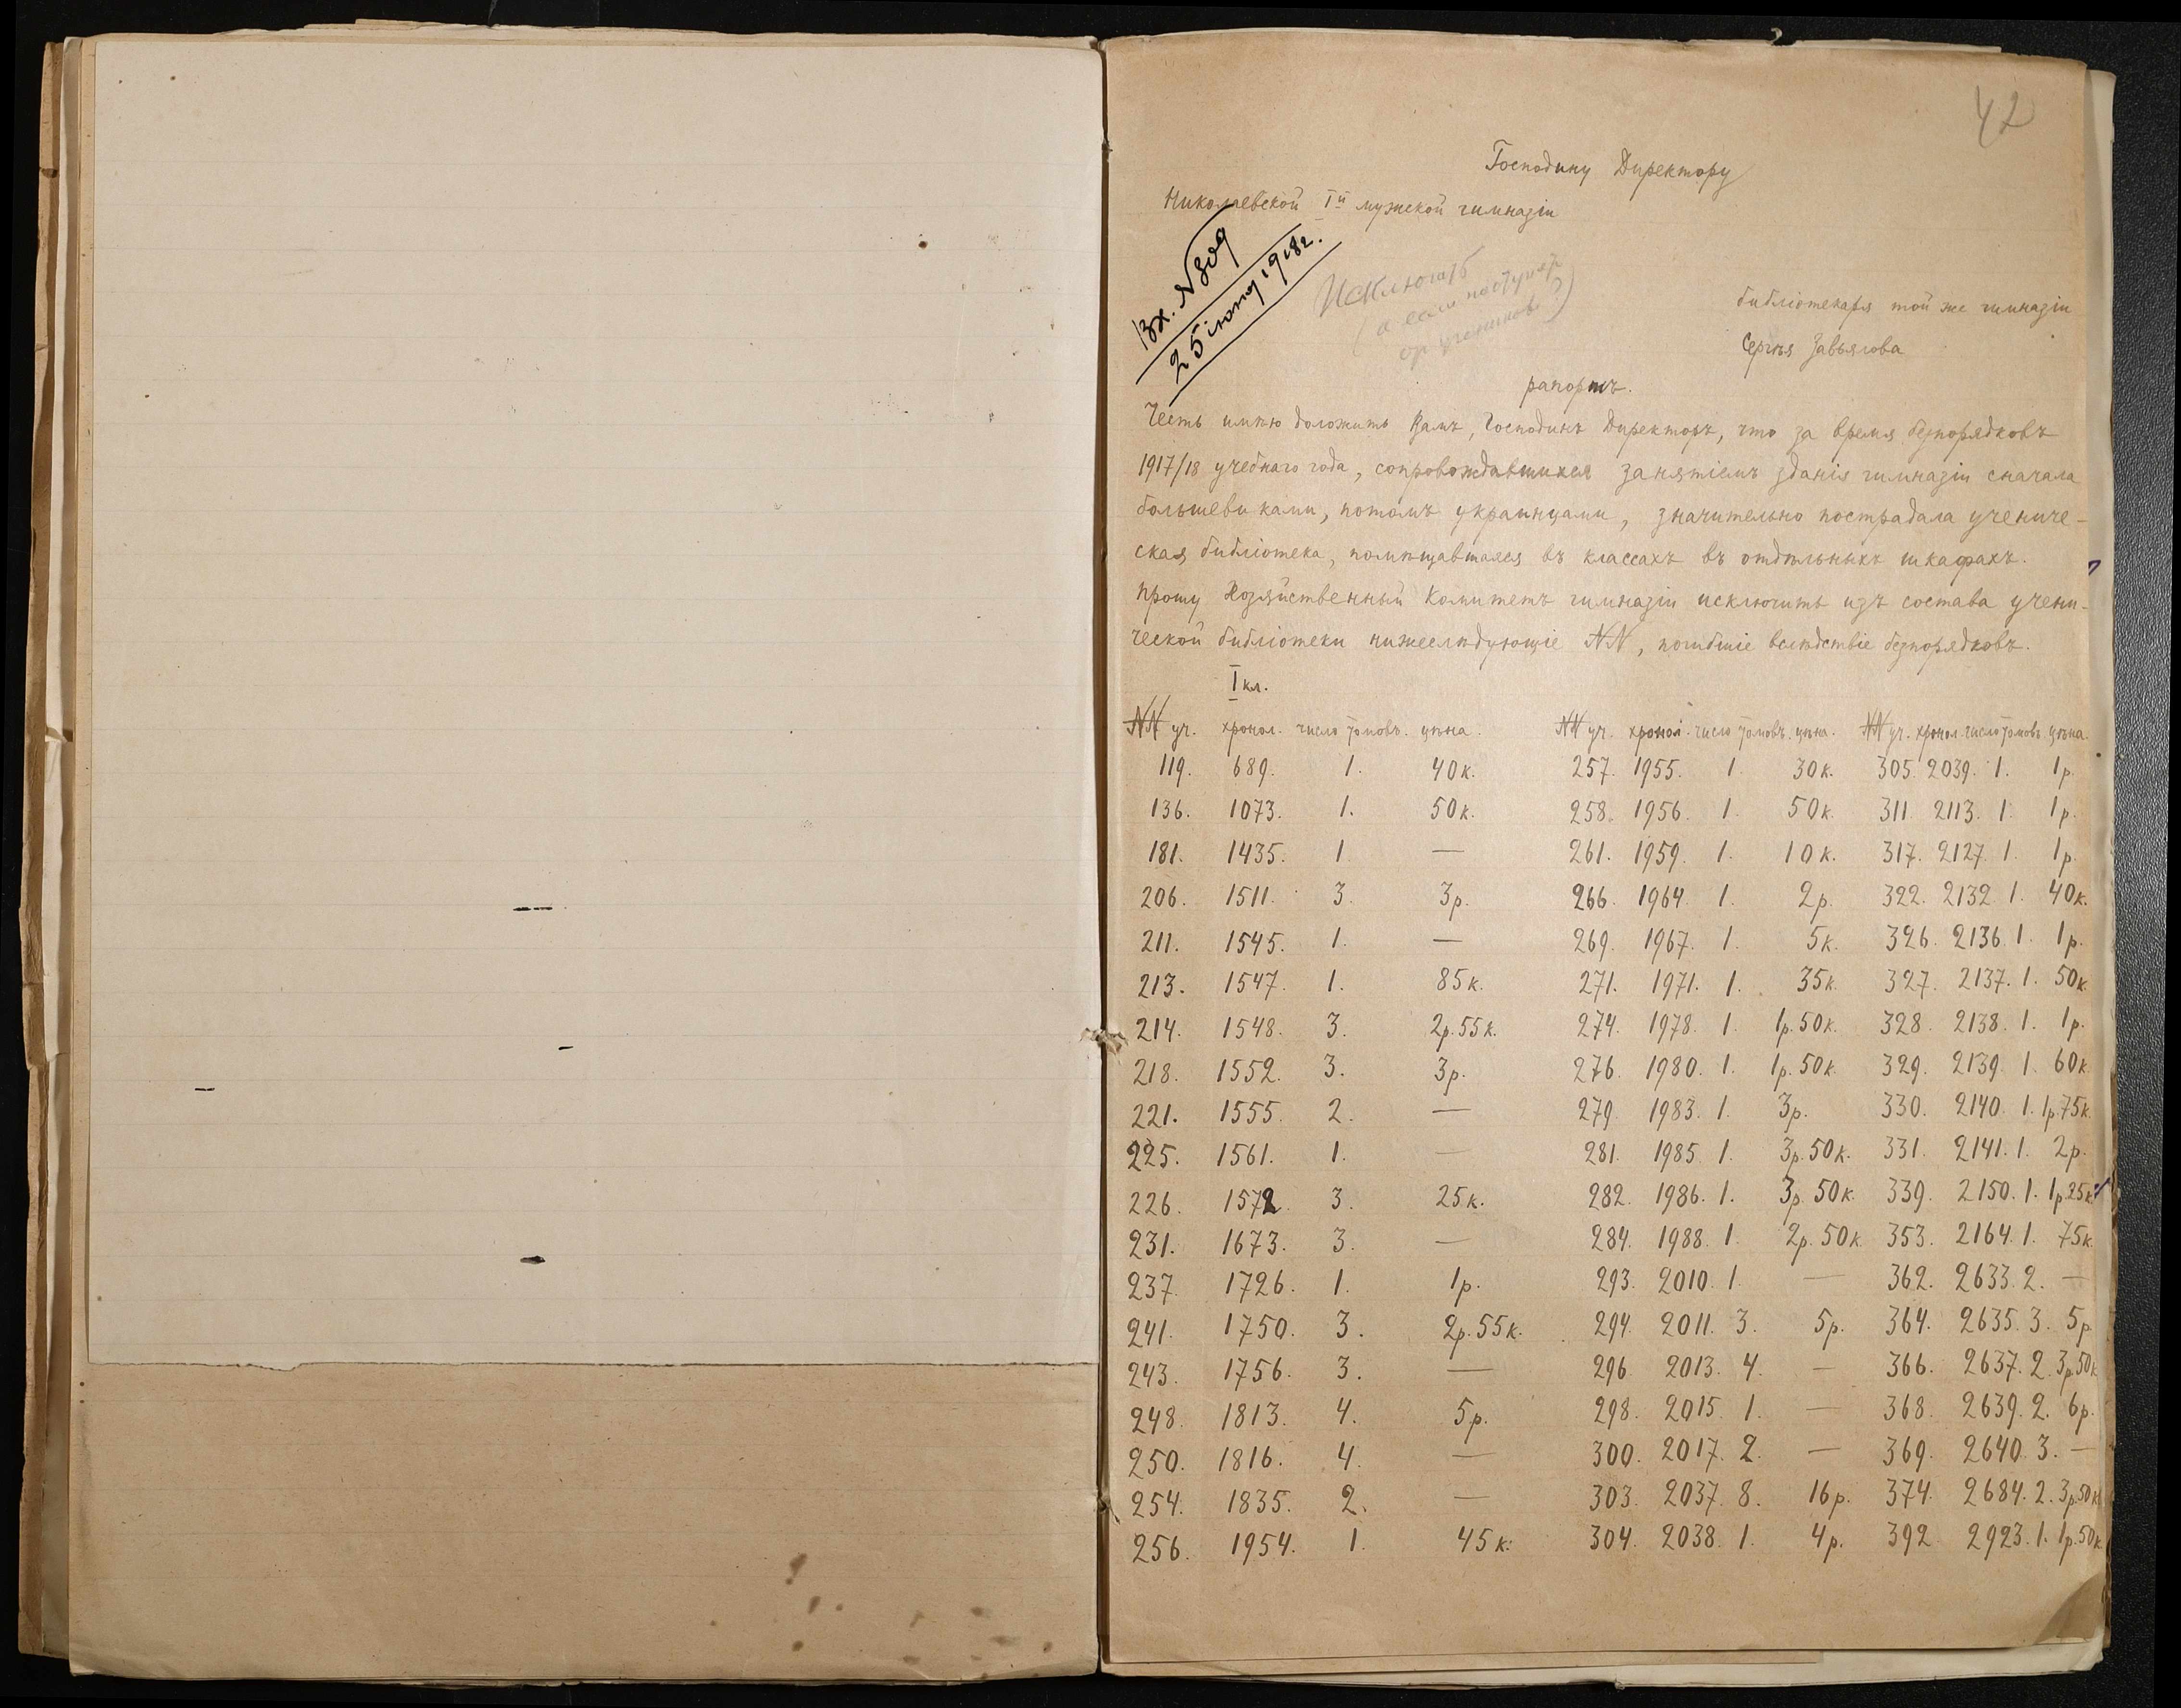 42
Господину Директору
Николаевской Iй мужской гимназіи
Вх. N 809
25 іюня 1918 г.
Исключить
(а если поступят
от учеников?)
библіотекаря той же гимназіи
Сергѣя Завьялова
рапортъ.
Честь имѣю доложить Вамъ, Господинъ Директоръ, что за время безпорядковъ
1917/18 учебнаго года, сопровождавшихся занятіемъ зданія гимназіи сначала
большевиками, потомъ украинцами, значительно пострадала учениче-
ская библіотека, помѣщавшаяся въ классахъ въ отдѣльныхъ шкафахъ.
Прошу Хозяйственный Комитетъ гимназіи исключить изъ состава учени-
ческой библіотеки нижеслѣдующіе NN, погибшіе вслѣдствіе безпорядковъ.
I кл.
NN уч. хронол. число томовъ. цѣна. NN уч. хронол. число томовъ. цѣна. NN уч. хронол. число томовъ цѣна.
119. 689. 1. 40к. 257. 1955. 1. 30к. 305. 2039. 1. 1р.
136. 1073. 1. 50к. 258. 1956. 1. 50к. 311. 2113. 1. 1р.
181. 1435. 1 — 261. 1959. 1. 10к. 317. 2127. 1. 1р.
206. 1511. 3. 3р. 266. 1964. 1. 2р. 322. 2132 1. 40к.
211. 1545. 1. — 269. 1967. 1. 5к. 326. 2136. 1. 1р.
213. 1547. 1. 85к. 271. 1971. 1. 35к. 327. 2137. 1. 50к
214. 1548. 3. 2р.55к. 274. 1978. 1. 1р.50к. 328. 2138. 1. 1р.
218. 1552. 3. 3р. 276. 1980. 1. 1р.50к. 329. 2139. 1. 60к
221. 1555. 2. — 279. 1983. 1. 3р. 330. 2140. 1. 1р.75к.
225. 1561. 1. — 281. 1985. 1. 3р.50к. 331. 2141. 1. 2р.
226. 1572. 3. 25к. 282. 1986. 1. 3р.50к. 339. 2150. 1. 1р.25к.
231. 1673. 3. — 284. 1988. 1. 2р.50к. 353. 2164. 1. 75к.
237. 1726. 1. 1р. 293. 2010. 1. — 362. 2633. 2. —
241. 1750. 3. 2р.55к. 294. 2011. 3. 5р. 364. 2635. 3. 5р
243. 1756. 3. — 296. 2013. 4. — 366. 2637. 2. 3р.50к
248. 1813. 4. 5р. 298. 2015. 1. — 368. 2639. 2. 6р.
250. 1816. 4. — 300. 2017. 2. — 369. 2640. 3. —
254. 1835. 2. — 303. 2037. 8. 16р. 374. 2684. 2. 3р.50к
256. 1954. 1. 45к. 304. 2038. 1. 4р. 392. 2923. 1. 1р.50к.